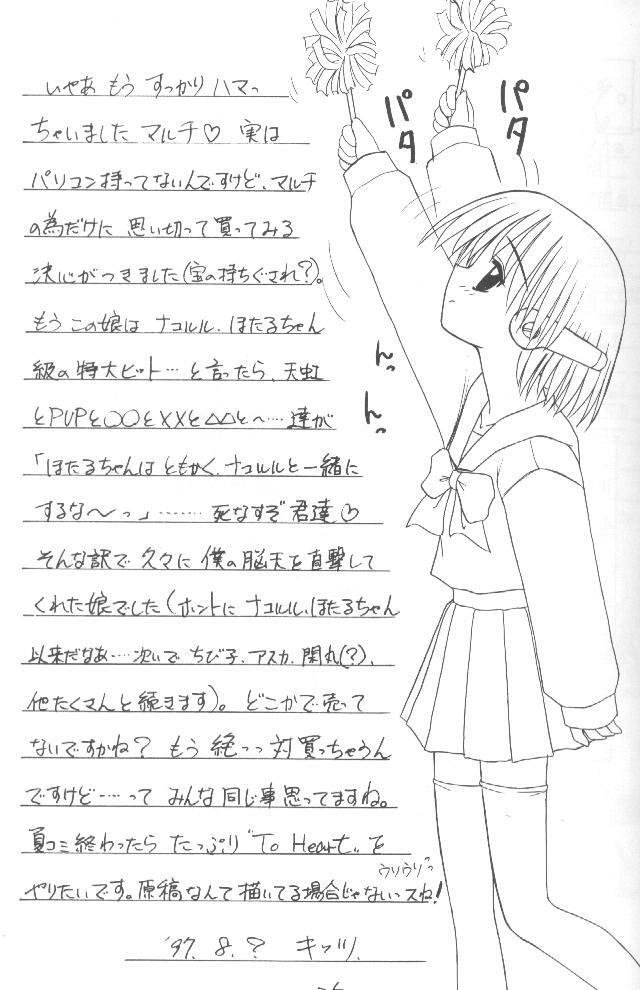 いやあ もう すっかり ハマっ
ちゃいました マルチ♡ 実は
パソコン持ってないんですけど、マルチ
の為だけに 思い切って買ってみる
決心がつきました(宝の持ちぐされ?)。
もう この娘は ナコルル、ほたるちゃん
級の 特大ヒット…と言ったら、天虹
とPUPと〇〇と××と△△と〜…達が
「ほたるちゃんは ともかく、ナコルルと一緒に
するな〜っ」………死なすぞ 君達♡
そんな訳で 久々に 僕の脳天を直撃して
くれた娘でした(ホントに ナコルル、ほたるちゃん
以来だなあ…次いで ちび子、アスカ、(?)、
他たくさんと続きます)。どこかで売って
ないですかね? もう 絶っっ対買っちゃうん
ですけど……って みんな同じ事思ってますね。
夏コミ終わったら たっぷり"To Heart"を
ウリウリっ
やりたいです。原稿なんて描いてる場合じゃないっスね!
'97. 8. ? キッツ.
パタ
パタ
んっ
んっ